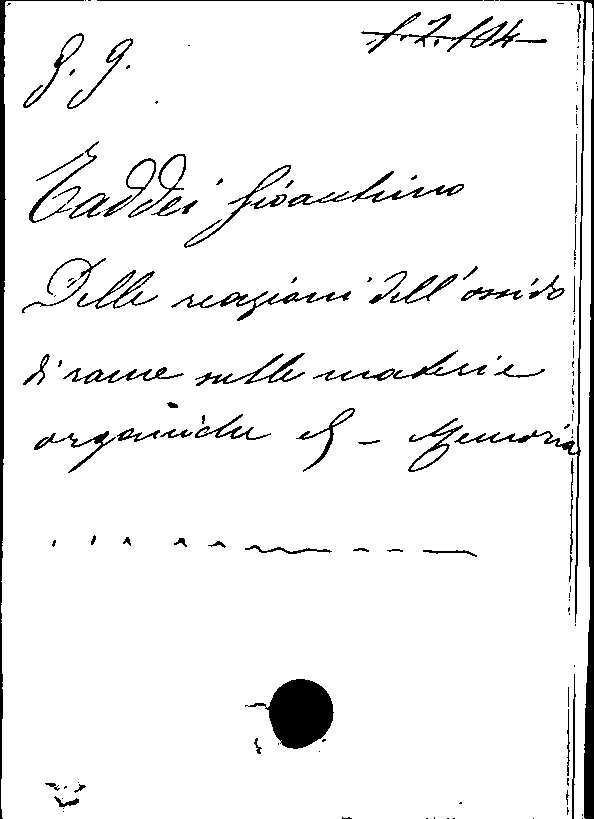 1.2.104
G. G.
Taddei Gioacchino
Delle reazioni dell'ossido
di rame sulle materie
organiche &. - Memoria